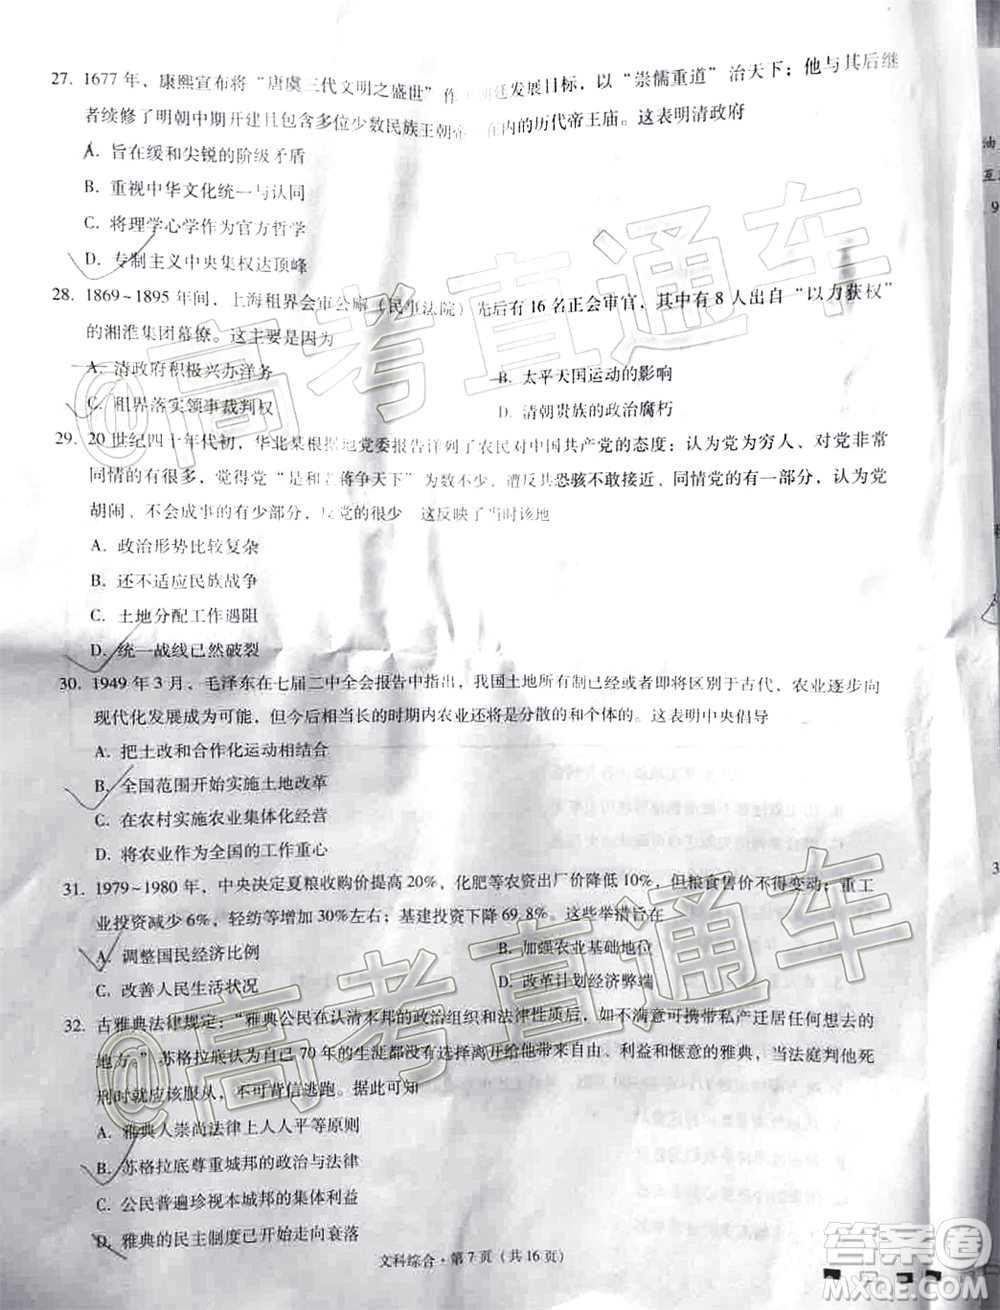 27. 1677 年，康熙宣布将“唐虞三代文明之盛世”作 廷发展目标，以“崇儒重道”治天下；他与其后继
者续修了明朝中期开建且包含多位少数民族王朝帝 在内的历代帝王庙。这表明清政府
A. 旨在缓和尖锐的阶级矛盾
B. 重视中华文化统一与认同
C. 将理学心学作为官方哲学
D. 专制主义中央集权达顶峰
28. 1869~1895 年间，上海租界会审公廨（民事法院）先后有 16 名正会审官，其中有 8 人出自“以力获权”
的湘淮集团幕僚。这主要是因为
A. 清政府积极兴办洋务
B. 太平天国运动的影响
C. 租界落实领事裁判权
D. 清朝贵族的政治腐朽
29. 20 世纪四十年代初，华北某根据地党委报告详列了农民对中国共产党的态度：认为党为穷人、对党非常
同情的有很多，觉得党“是和 蒋争天下”为数不少，遭反共恐骇不敢接近、同情党的有一部分，认为党
胡闹、不会成事的有少部分，反党的很少 这反映了当时该地
A. 政治形势比较复杂
B. 还不适应民族战争
C. 土地分配工作遇阻
D. 统一战线已然破裂
30. 1949 年 3 月，毛泽东在七届二中全会报告中指出，我国土地所有制已经或者即将区别于古代，农业逐步向
现代化发展成为可能，但今后相当长的时期内农业还将是分散的和个体的。这表明中央倡导
A. 把土改和合作化运动相结合
B. 全国范围开始实施土地改革
C. 在农村实施农业集体化经营
D. 将农业作为全国的工作重心
31. 1979~1980 年，中央决定夏粮收购价提高 20%，化肥等农资出厂价降低 10%，但粮食售价不变动；重工
业投资减少 6%，轻纺等增加 30%左右；基建投资下降 69.8%。这些举措旨在
A. 调整国民经济比例
B. 加强农业基础地位
C. 改善人民生活状况
D. 改革计划经济弊端
32. 古雅典法律规定：“雅典公民在认清本邦的政治组织和法律性质后，如不满意可携带私产迁居任何想去的
地方。”苏格拉底认为自己 70 年的生涯都没有选择离开给他带来自由、利益和惬意的雅典，当法庭判他死
刑时就应该服从，不可背信逃跑。据此可知
A. 雅典人崇尚法律上人人平等原则
B. 苏格拉底尊重城邦的政治与法律
C. 公民普遍珍视本城邦的集体利益
D. 雅典的民主制度已开始走向衰落
文科综合·第 7 页（共 16 页）
@高考直通车
@高考直通车
答案圈
MXQE.COM